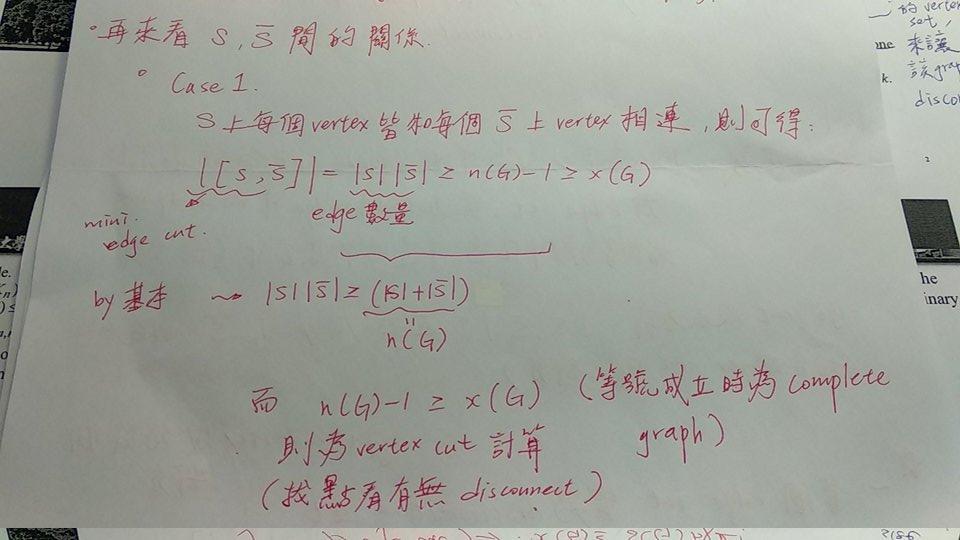 再來看 S, S̄ 間的關係.
Case 1.
S上每個vertex皆和每個 S̄ 上vertex相連,則可得:
|[S, S̄]| = |S||S̄| ≥ n(G)-1 ≥ x(G)
mini. edge數量
edge cut.
by基本 ⇝ |S||S̄| ≥ (|S|+|S̄|)
n(G)
而 n(G)-1 ≥ x(G) (等號成立時為complete
則為vertex cut計算 graph)
(找點看有無 disconnect)
的vertex
set,
來讓
該grap
disco
me
k.
2
大學
he
inary